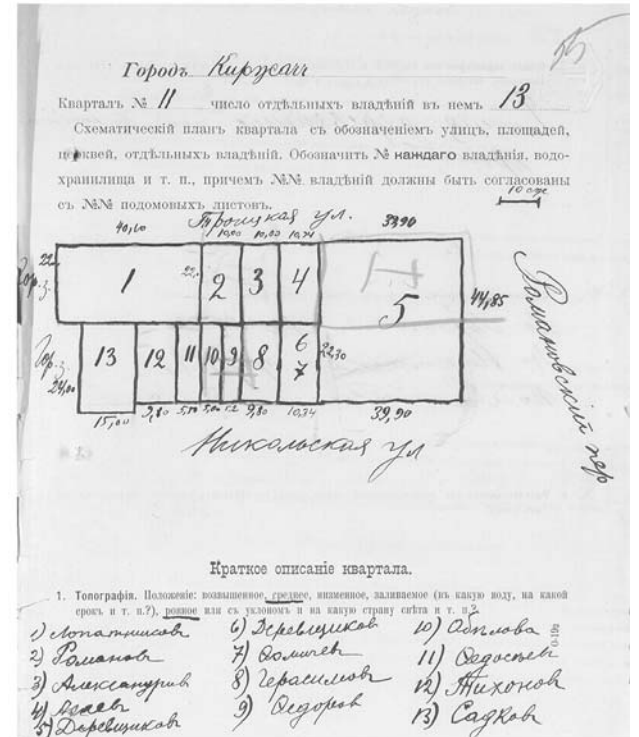 25
Городъ Киржачъ
Кварталъ № 11 число отдѣльныхъ владѣній въ немъ 13
Схематическій планъ квартала съ обозначеніемъ улицъ, площадей,
церквей, отдѣльныхъ владѣній. Обозначить № каждаго владѣнія, водо-
хранилища и т. п., причемъ №№ владѣній должны быть согласованы
съ №№ подомовыхъ листовъ.
10 саж
Троицкая ул.
40,60 10,20 10,00 10,74
Гор. з. 22
1 22 2 3 4 5 44,85
Романовскій пер
Гор. з. 24,00
13 12 11 10 9 8 6 7 22,30
15,00 9,80 5,50 5,00 9,80 10,74 39,90
Никольская ул
Краткое описаніе квартала.
1. Топографія. Положеніе: возвышенное, среднее, низменное, заливаемое (въ какую воду, на какой
срокъ и т. п.?), ровное или съ уклономъ и на какую страну свѣта и т. п.?
1) Лопатниковъ 6) Деревщиковъ 10) Обѣлова
2) Романовъ 7) Фомичевъ 11) Федосѣевъ
3) Александровъ 8) Герасимовъ 12) Тихоновъ
4) Агаевъ 9) Федоровъ 13) Садковъ
5) Деревщиковъ